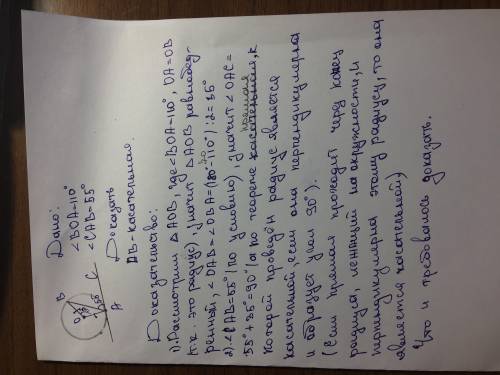 Дано:
<BOA=110°
<CAB=55°
Доказать
AB-касательная.
B
O
110°
55°
C
A
Доказательство:
1) Рассмотрим △AOB, где <BOA=110°, OA=OB
т.к. это радиус), значит △AOB равнобед-
ренный, <OAB=<OBA=(180°-110°):2=35°
2) <CAB=55°(по условию), значит <OAC=
прямая
55°+35°=90°(а по теореме касательная, к
которой проведён радиус является
касательной, если она перпендикулярна
и образует угол 90°).
(если прямая проходит через конец
радиуса, лежащий на окружности, и
перпендикулярна этому радиусу, то она
является касательной)
Что и требовалось доказать.